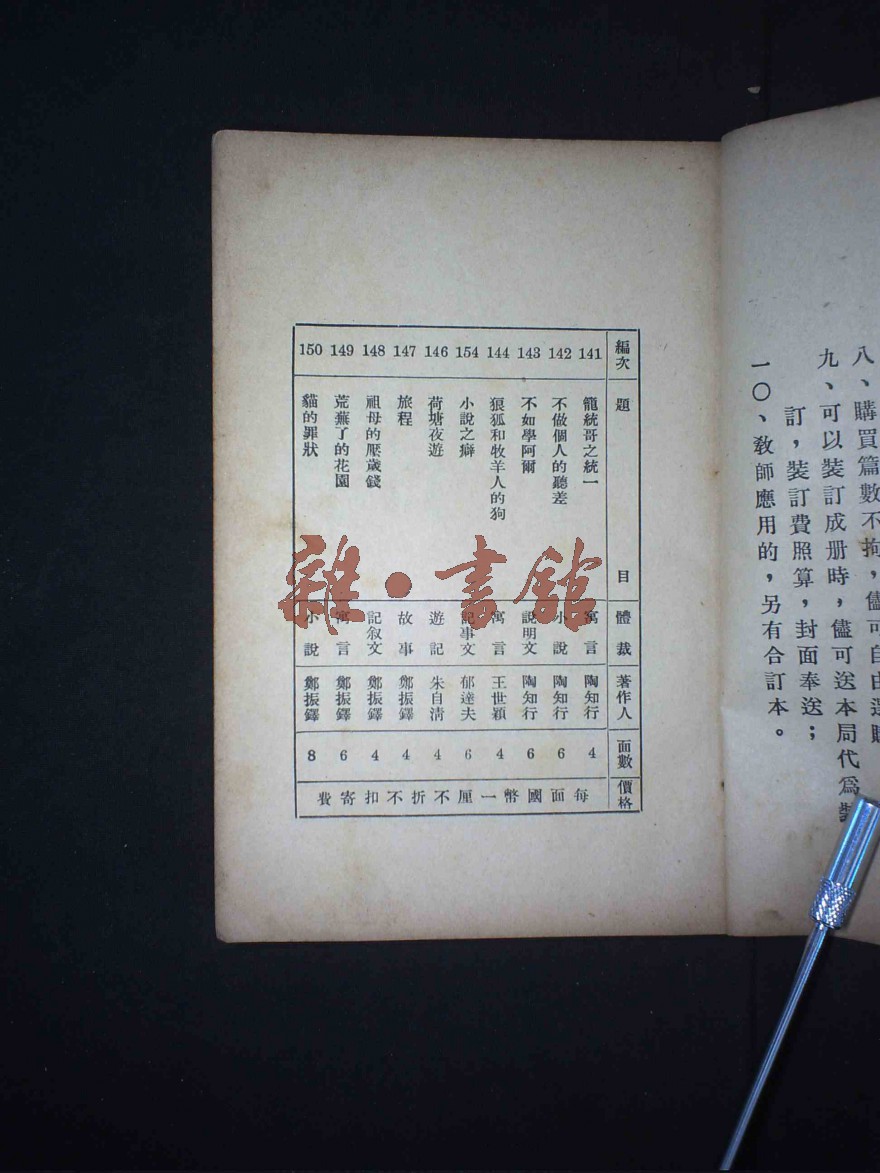 八、購買篇數不拘，儘可自由選
九、可以裝訂成册時，儘可送本局代爲裝
訂，裝訂費照算，封面奉送；
一〇、教師應用的，另有合訂本。
編次 題目 體裁 著作人 面數 價格
141 籠統哥之統一 寓言 陶知行 4
142 不做個人的聽差 小說 陶知行 6
143 不如學阿爾 說明文 陶知行 6
144 狠狐和牧羊人的狗 寓言 王世穎 4
154 小說之癖 記事文 郁達夫 6
146 荷塘夜遊 遊記 朱自淸 4
147 旅程 故事 鄭振鐸 4
148 祖母的壓歲錢 記敘文 鄭振鐸 4
149 荒蕪了的花園 寓言 鄭振鐸 6
150 貓的罪狀 小說 鄭振鐸 8
每面國幣一厘不折不扣寄費
雜·書館